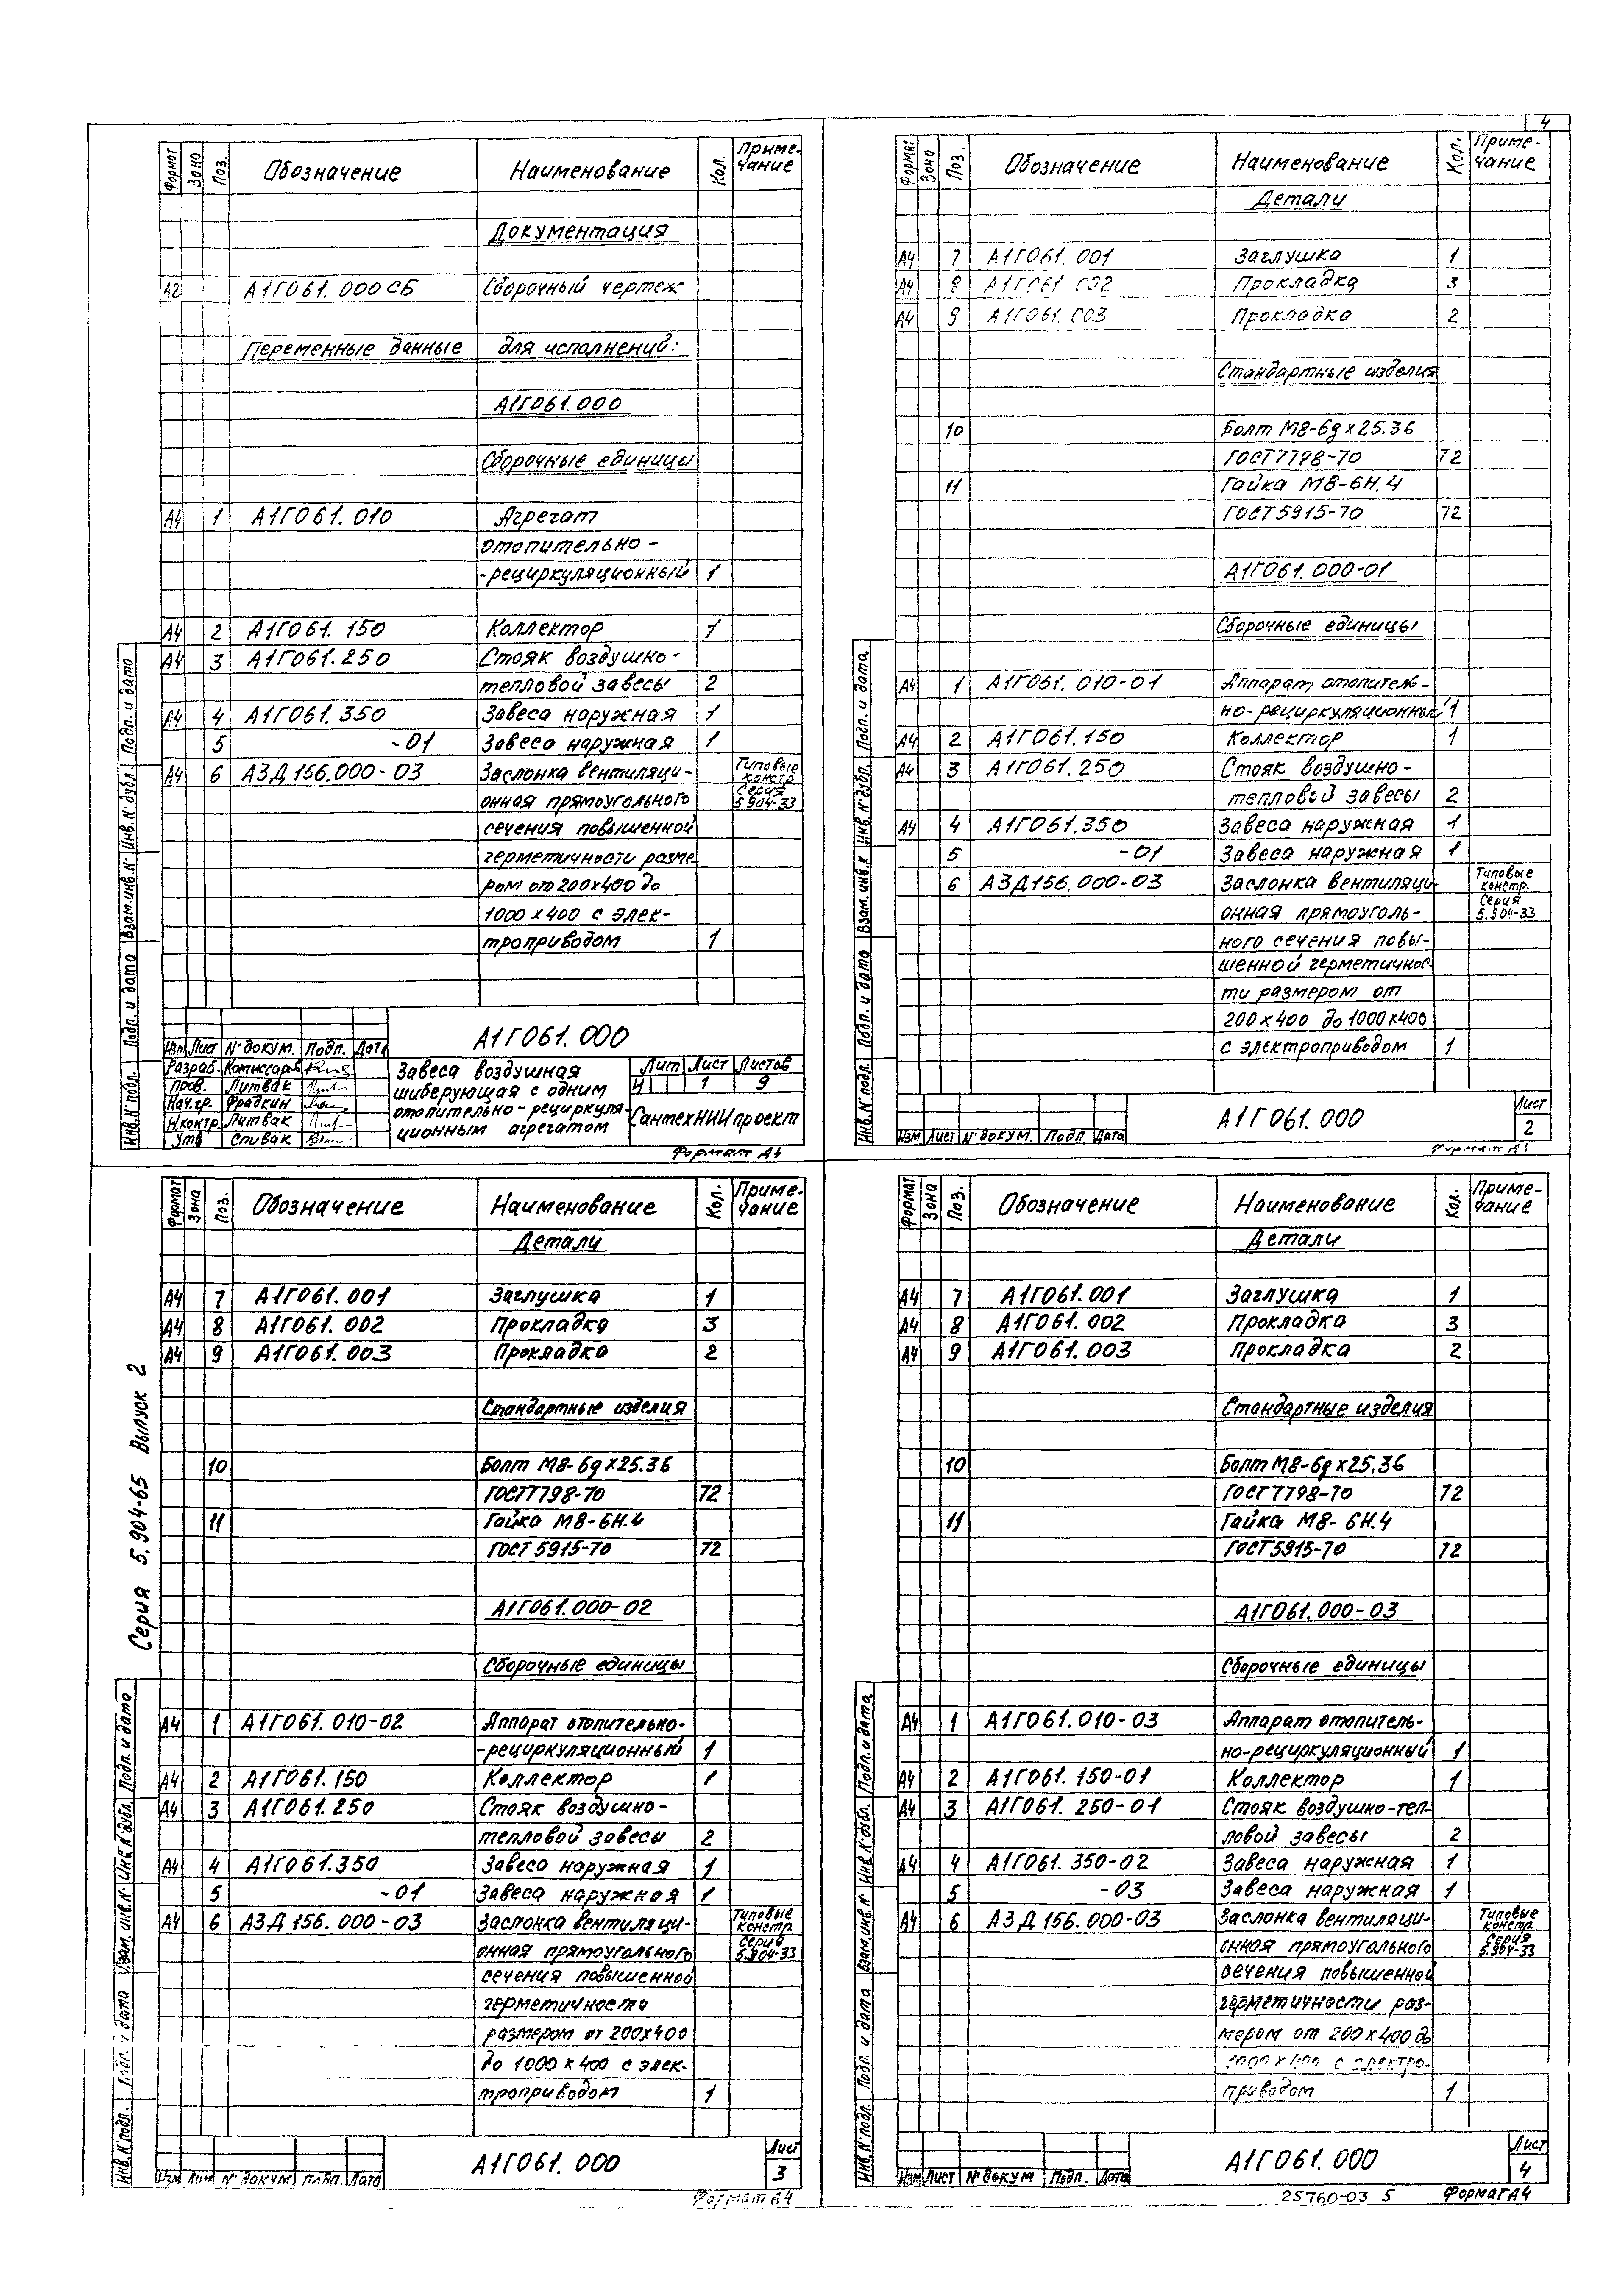 4
Формат Зона Поз. Обозначение Наименование Кол. Приме-
чание
Документация
А2 А1Г061.000СБ Сборочный чертеж
Переменные данные для исполнений:
А1Г061.000
Сборочные единицы
А4 1 А1Г061.010 Агрегат
отопительно-
-рециркуляционный 1
А4 2 А1Г061.150 Коллектор 1
А4 3 А1Г061.250 Стояк воздушно-
тепловой завесы 2
А4 4 А1Г061.350 Завеса наружная 1
5 -01 Завеса наружная 1
А4 6 А3Д156.000-03 Заслонка вентиляци- Типовые констр.
онная прямоугольного Серия 5.904-33
сечения повышенной
герметичности разме
ром от 200х400 до
1000х400 с элек-
троприводом 1
Инв.№ подл. Подп. и дата Взам.инв.№ Инв.№ дубл. Подп. и дата
Изм Лист № докум. Подп. Дата
Разраб. Комиссаров
Пров. Литвак
Нач.гр. Фрадкин
Н.контр. Литвак
Утв Спивак
А1Г061.000
Завеса воздушная
шиберующая с одним
отопительно-рециркуля-
ционным агрегатом
Лит Лист Листов
И 1 9
СантехНИИпроект
Формат А4
Формат Зона Поз. Обозначение Наименование Кол. Приме-
чание
Детали
А4 7 А1Г061.001 Заглушка 1
А4 8 А1Г061.002 Прокладка 3
А4 9 А1Г061.003 Прокладка 2
Стандартные изделия
10 Болт М8-6gх25.36
ГОСТ7798-70 72
11 Гайка М8-6Н.4
ГОСТ5915-70 72
А1Г061.000-01
Сборочные единицы
А4 1 А1Г061.010-01 Аппарат отопитель-
но-рециркуляционный 1
А4 2 А1Г061.150 Коллектор 1
А4 3 А1Г061.250 Стояк воздушно-
тепловой завесы 2
А4 4 А1Г061.350 Завеса наружная 1
5 -01 Завеса наружная 1
6 А3Д156.000-03 Заслонка вентиляци- Типовые констр.
онная прямоуголь- Серия 5.904-33
ного сечения повы-
шенной герметичнос-
ти размером от
200х400 до 1000х400
с электроприводом 1
Инв.№ подл. Подп. и дата Взам. инв.№ Инв.№ дубл. Подп. и дата
Изм Лист № докум. Подп Дата
А1Г061.000
Лист
2
Формат А4
Серия 5.904-65 Выпуск 2
Формат Зона Поз. Обозначение Наименование Кол. Приме-
чание
Детали
А4 7 А1Г061.001 Заглушка 1
А4 8 А1Г061.002 Прокладка 3
А4 9 А1Г061.003 Прокладка 2
Стандартные изделия
10 Болт М8-6gх25.36
ГОСТ7798-70 72
11 Гайка М8-6Н.4
ГОСТ 5915-70 72
А1Г061.000-02
Сборочные единицы
А4 1 А1Г061.010-02 Аппарат отопительно-
-рециркуляционный 1
А4 2 А1Г061.150 Коллектор 1
А4 3 А1Г061.250 Стояк воздушно-
тепловой завесы 2
А4 4 А1Г061.350 Завеса наружная 1
5 -01 Завеса наружная 1
А4 6 А3Д156.000-03 Заслонка вентиляци- Типовые констр
онная прямоугольного Серия 5.904-33
сечения повышенной
герметичности
размером от 200х400
до 1000х400 с элек-
троприводом 1
Инв.№ подл. Подп. и дата Взам.инв.№ Инв.№ дубл. Подп. и дата
Изм Лист № докум Подп. Дата
А1Г061.000
Лист
3
Формат А4
Формат Зона Поз. Обозначение Наименование Кол. Приме-
чание
Детали
А4 7 А1Г061.001 Заглушка 1
А4 8 А1Г061.002 Прокладка 3
А4 9 А1Г061.003 Прокладка 2
Стандартные изделия
10 Болт М8-6gх25.36
ГОСТ7798-70 72
11 Гайка М8-6Н.4
ГОСТ5915-70 72
А1Г061.000-03
Сборочные единицы
А4 1 А1Г061.010-03 Аппарат отопитель-
но-рециркуляционный 1
А4 2 А1Г061.150-01 Коллектор 1
А4 3 А1Г061.250-01 Стояк воздушно-теп-
ловой завесы 2
А4 4 А1Г061.350-02 Завеса наружная 1
5 -03 Завеса наружная 1
А4 6 А3Д156.000-03 Заслонка вентиляци- Типовые констр
онная прямоугольного Серия 5.904-33
сечения повышенной
герметичности раз-
мером от 200х400 до
1000х400 с электро-
приводом 1
Инв.№ подл. Подп. и дата Взам.инв.№ Инв.№ дубл. Подп. и дата
Изм Лист № докум Подп. Дата
А1Г061.000
Лист
4
25760-03 5 Формат А4